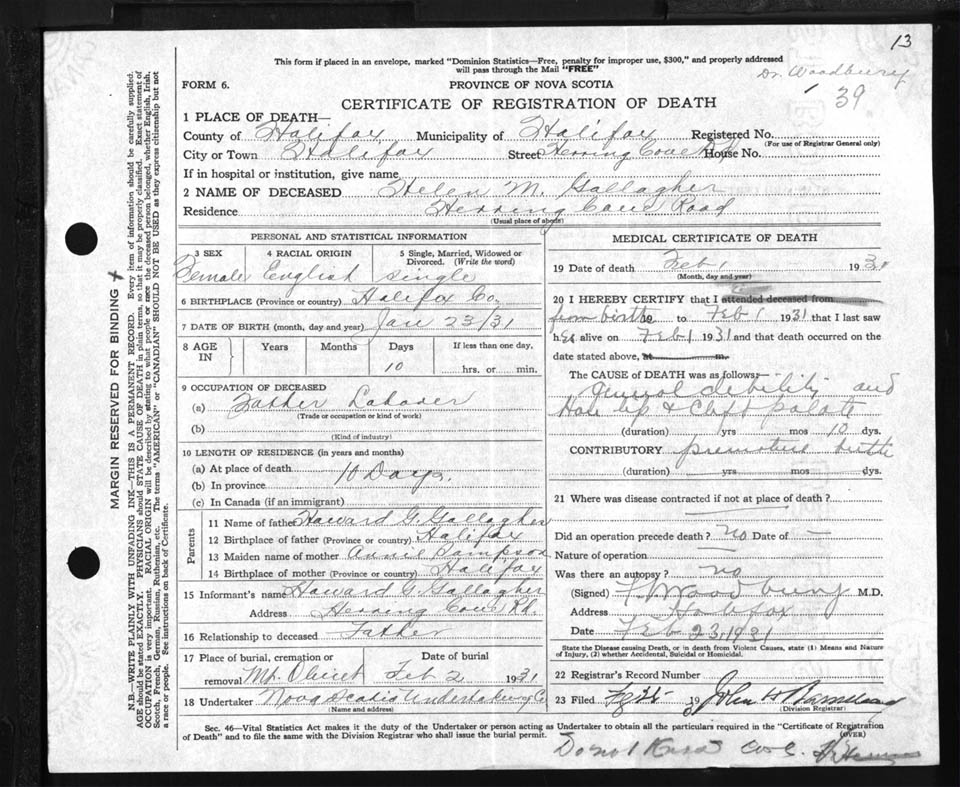 13
This form if placed in an envelope, marked "Dominion Statistics—Free, penalty for improper use, $300," and properly addressed
will pass through the Mail "FREE"
Dr. Woodbury
39
FORM 6.
PROVINCE OF NOVA SCOTIA
CERTIFICATE OF REGISTRATION OF DEATH
1 PLACE OF DEATH—
County of Halifax Municipality of Halifax Registered No.
(For use of Registrar General only)
City or Town Halifax Street Herring Cove Rd House No.
If in hospital or institution, give name
2 NAME OF DECEASED Helen M. Gallagher
Residence Herring Cove Road
(Usual place of abode)
PERSONAL AND STATISTICAL INFORMATION
3 SEX 4 RACIAL ORIGIN 5 Single, Married, Widowed or Divorced. (Write the word)
Female English single
6 BIRTHPLACE (Province or country) Halifax Co.
7 DATE OF BIRTH (month, day and year) Jan 23/31
8 AGE IN Years Months Days If less than one day,
10 hrs. or min.
9 OCCUPATION OF DECEASED
(a) Father Laborer
(Trade or occupation or kind of work)
(b)
(Kind of industry)
10 LENGTH OF RESIDENCE (in years and months)
(a) At place of death
(b) In province 10 Days.
(c) In Canada (if an immigrant)
Parents
11 Name of father Howard G. Gallagher
12 Birthplace of father (Province or country) Halifax
13 Maiden name of mother Annie Sampson
14 Birthplace of mother (Province or country) Halifax
15 Informant's name Howard G. Gallagher
Address Herring Cove Rd.
16 Relationship to deceased Father
17 Place of burial, cremation or removal Mt. Olivet Date of burial Feb 2 1931
18 Undertaker Nova Scotia Undertaking Co
(Name and address)
MEDICAL CERTIFICATE OF DEATH
19 Date of death Feb 1 1931
(Month, day and year)
20 I HEREBY CERTIFY that I attended deceased from
from birth to Feb 1 1931 that I last saw
her alive on Feb 1 1931 and that death occurred on the
date stated above, at m.
The CAUSE of DEATH was as follows:—
general debility and
Hare lip & Cleft palate
(duration) yrs mos 10 dys.
CONTRIBUTORY premature birth
(duration) yrs mos dys.
21 Where was disease contracted if not at place of death?
Did an operation precede death? no Date of —
Nature of operation
Was there an autopsy? no
(Signed) Woodbury M.D.
Address Halifax
Date Feb 23, 1931
State the Disease causing Death, or in death from Violent Causes, state (1) Means and Nature
of Injury, (2) whether Accidental, Suicidal or Homicidal.
22 Registrar's Record Number
23 Filed 19 John
(Division Registrar)
(OVER)
Sec. 46—Vital Statistics Act makes it the duty of the Undertaker or person acting as Undertaker to obtain all the particulars required in the "Certificate of Registration
of Death" and to file the same with the Division Registrar who shall issue the burial permit.
MARGIN RESERVED FOR BINDING
N.B.—WRITE PLAINLY WITH UNFADING INK—THIS IS A PERMANENT RECORD. Every item of information should be carefully supplied.
AGE should be stated EXACTLY. PHYSICIANS should STATE CAUSE OF DEATH in plain terms, so that it may be properly classified. Exact statement of
OCCUPATION is very important. RACIAL ORIGIN will be described by stating to what people or race the deceased person belonged, whether English, Irish,
Scotch, French, German, Russian, Ruthenian, etc. The terms "AMERICAN" or "CANADIAN" SHOULD NOT BE USED as they express citizenship but not
a race or people. See instructions on back of Certificate.